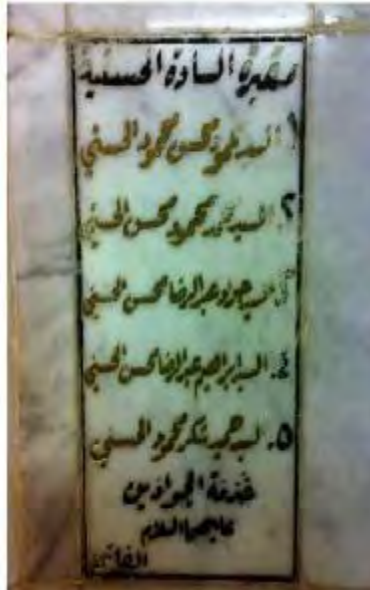 مقبرة السادة الحسنية
١. السيد محمود محسن محمود الحسني
٢. السيد محمد محمود محسن الحسني
٣. السيد جواد عبد الرضا محسن الحسني
٤. السيد ابراهيم عبد الرضا محسن الحسني
٥. السيد حميد شاكر محمود الحسني
خدمة الجوادين
عليهما السلام
الفاتحة